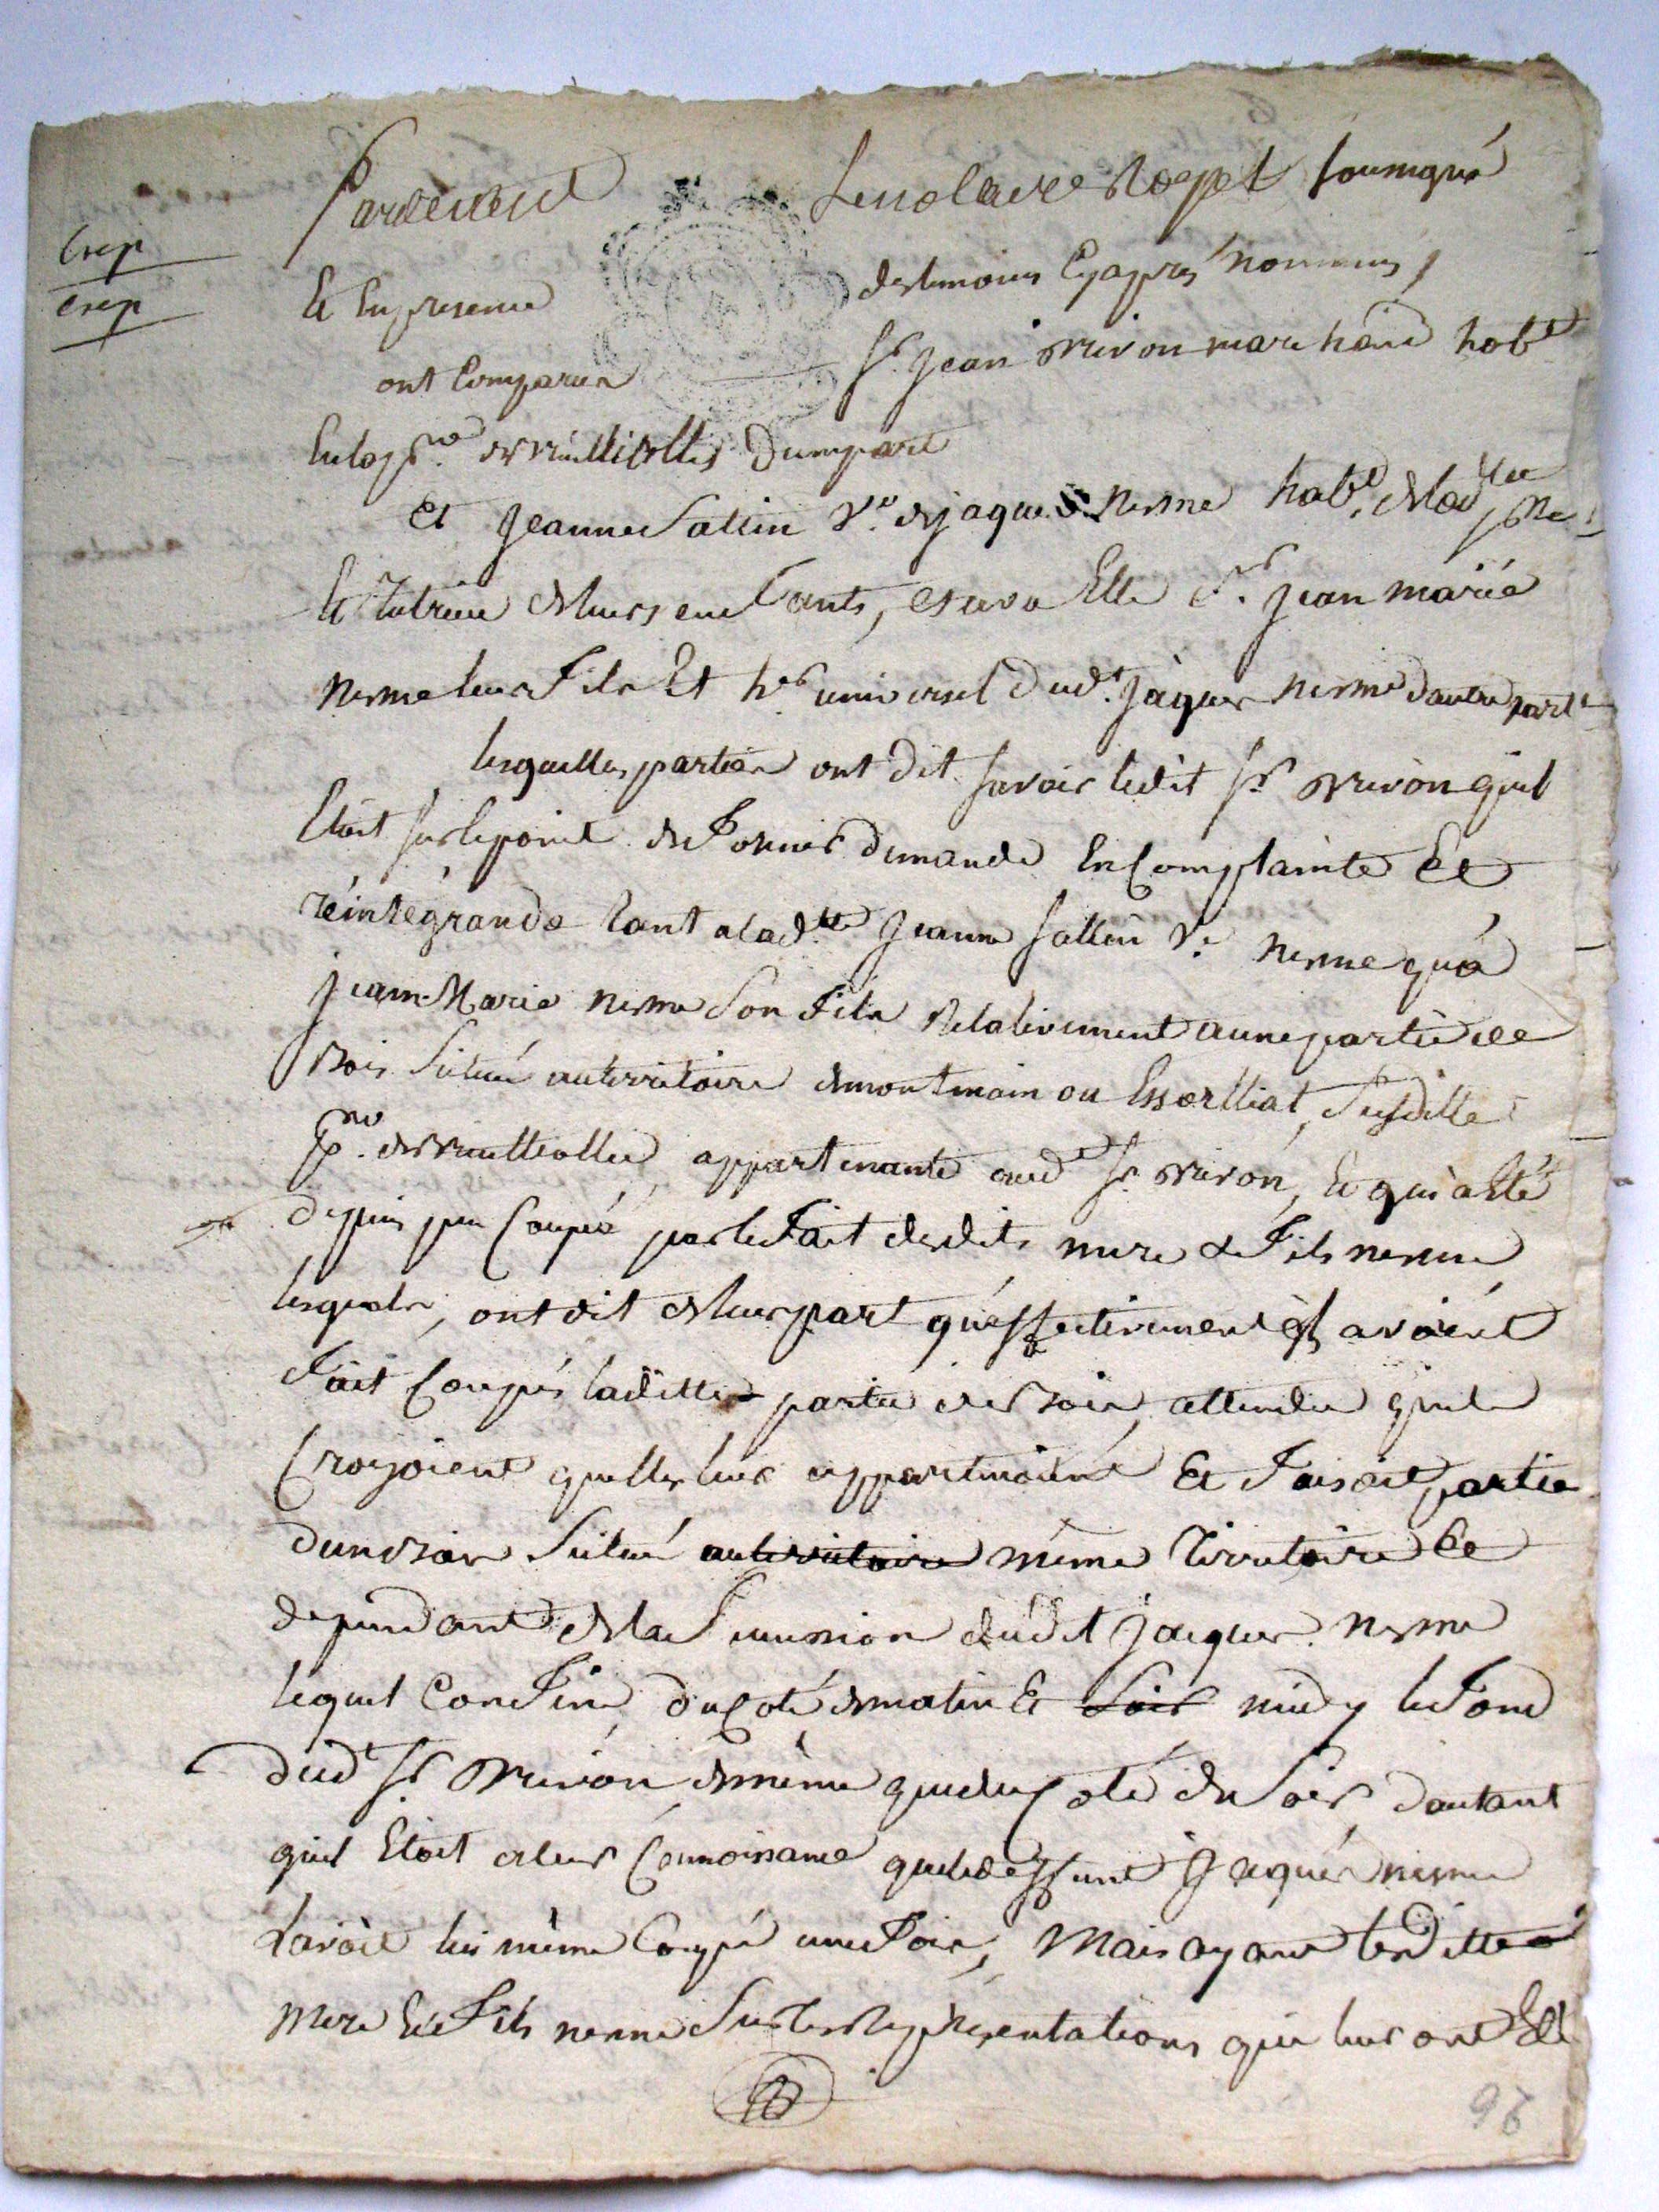 Exp
Exp
Pardevant Le notaire Royal soussigné
Et En presence des temoins Cy après nommés,
ont Comparu Sr. Jean man marchand habt
En la psse. de d'une part
Et Jeanne Sattin Ve. de jaques Nesme habte.
Et tutrice de leurs enfants, et avec Elle Sr. jean marie
nesme leur fils Et her universel dud. jâques nesme d'autre part
lesquelles parties ont dit savoir ledit Sr. quil
Etoit sur le point de former demande En Complainte Et
réintégrande tant a ladtte Jeanne Sattin Ve. nesme qu'a
jean-Marie nesme Son fils Relativement a une partie de
Bois Situé au territoire de montmain ou Susditte
psse. de appartenante aud Sr. Et qui a Eté
depuis peu Coupé par le fait desdits mere & fils nesme
lesquels, ont dit de leur part qu'effectivement ils avoient
fait Coupér laditte partie de Bois, attendu quils
Croyoient quelle leur appartenoient Et faisoit partie
d'un bois Situé au territoire même territoire Et
dependant de la Succession dudit jacques nesme
lequel Confine du Coté de matin Et Soir midy le fond
dud Sr. de même que du Coté du Soir, d'autant
quil Etoit a leur Connoissance que le deffunt Jaques nesme
L'avoit lui même Coupé une fois, Mais ayant lesdittes
mere Et fils nesme Sur les Representations qui leur ont Eté
96